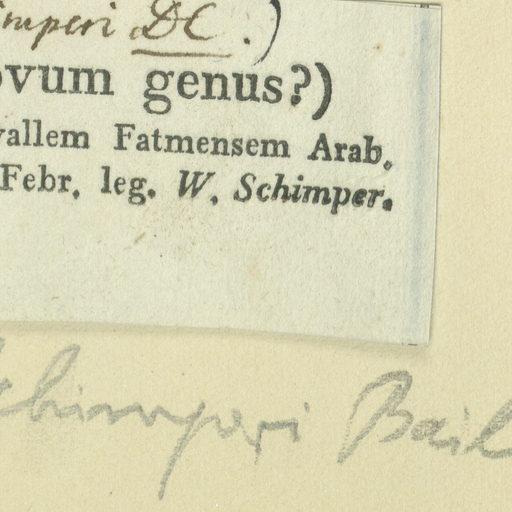 imperi DC.)
ovum genus?)
vallem Fatmensem Arab.
Febr. leg. W. Schimper.
chimperi Bail